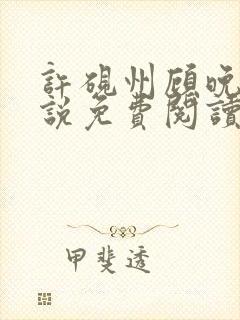 許硯州顧晚
說免費閱讀
甲斐透